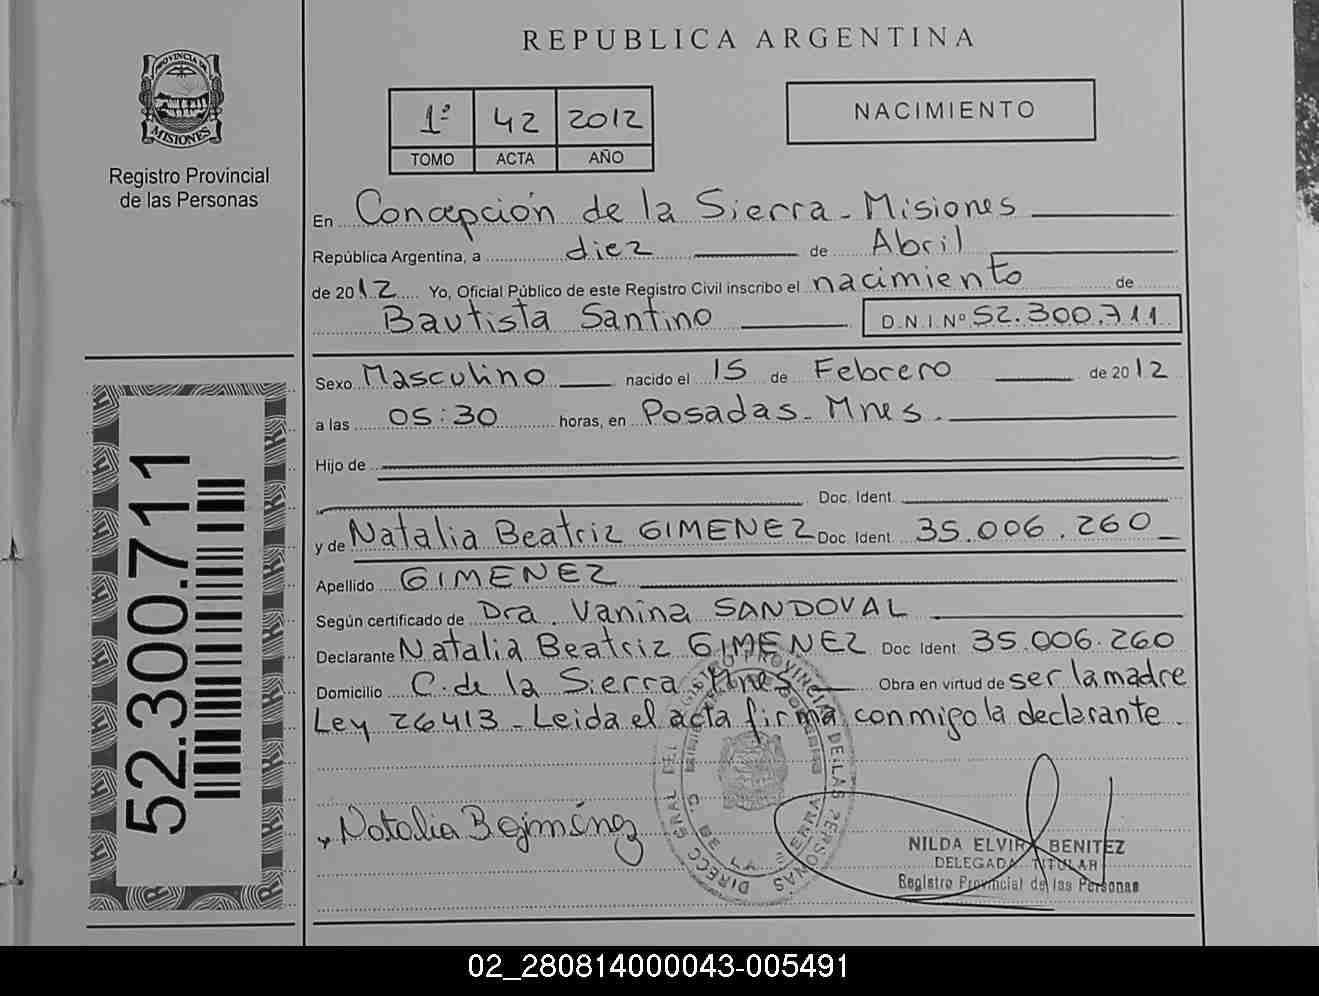 REPUBLICA ARGENTINA
PROVINCIA DE
MISIONES
Registro Provincial
de las Personas
1º 42 2012
TOMO ACTA AÑO
NACIMIENTO
En Concepción de la Sierra - Misiones
República Argentina, a diez de Abril
de 2012 Yo, Oficial Público de este Registro Civil inscribo el nacimiento de
Bautista Santino D.N.I. Nº 52.300.711
Sexo Masculino nacido el 15 de Febrero de 2012
a las 05:30 horas, en Posadas - Mnes.
Hijo de
Doc. Ident.
y de Natalia Beatriz GIMENEZ Doc. Ident. 35.006.260
Apellido GIMENEZ
Según certificado de Dra. Vanina SANDOVAL
Declarante Natalia Beatriz GIMENEZ Doc. Ident. 35.006.260
Domicilio C. de la Sierra Mnes Obra en virtud de ser la madre
Ley 26413 - Leida el acta firma conmigo la declarante.
52.300.711
Natalia B Giménez
DIRECC GRAL DEL REGISTRO PROVINCIAL DE LAS PERSONAS
C. DE LA SIERRA
NILDA ELVIRA BENITEZ
DELEGADA TITULAR
Registro Provincial de las Personas
02_280814000043-005491